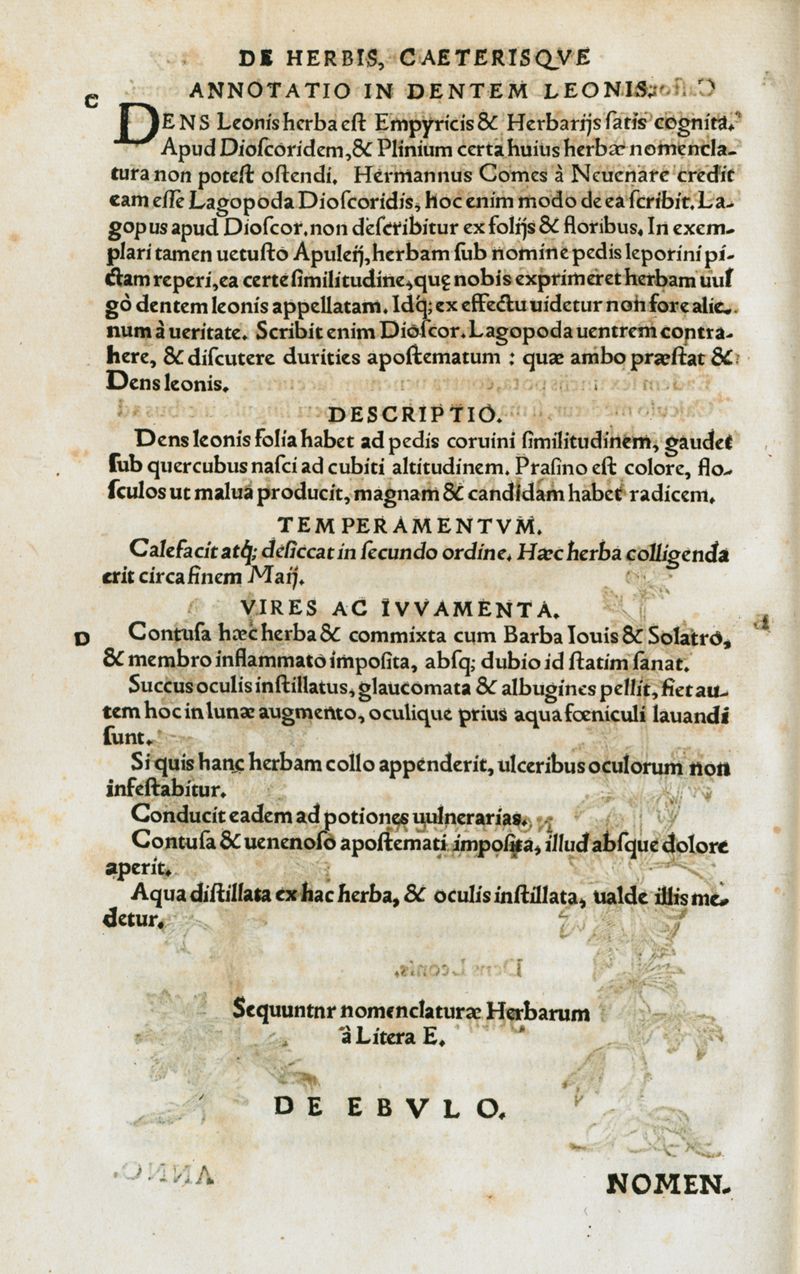 DE HERBIS, CAETERISQVE
ANNOTATIO IN DENTEM LEONIS.
C
DENS Leonis herba eſt Empyricis & Herbarijs ſatis cognita.
Apud Dioſcoridem, & Plinium certa huius herbæ nomencla-
tura non poteſt oſtendi. Hermannus Comes à Neuenare credit
eam eſſe Lagopoda Dioſcoridis, hoc enim modo de ea ſcribit. La-
gopus apud Dioſcor. non deſcribitur ex folijs & floribus. In exem-
plari tamen uetuſto Apuleij, herbam ſub nomine pedis leporini pi-
ctam reperi, ea certe ſimilitudine, quę nobis exprimeret herbam uul
gò dentem leonis appellatam. Idq; ex effectu uidetur non fore alie-
num à ueritate. Scribit enim Dioſcor. Lagopoda uentrem contra-
here, & diſcutere durities apoſtematum : quæ ambo præſtat &
Dens leonis.
DESCRIPTIO.
Dens leonis folia habet ad pedis coruini ſimilitudinem, gaudet
ſub quercubus naſci ad cubiti altitudinem. Praſino eſt colore, flo-
ſculos ut malua producit, magnam & candidam habet radicem.
TEMPERAMENTVM.
Calefacit atq; deſiccat in ſecundo ordine. Hæc herba colligenda
erit circa finem Maij.
VIRES AC IVVAMENTA.
D
Contuſa hæc herba & commixta cum Barba Iouis & Solatro,
& membro inflammato impoſita, abſq; dubio id ſtatim ſanat.
Succus oculis inſtillatus, glaucomata & albugines pellit, fiet au-
tem hoc in lunæ augmento, oculique prius aqua fœniculi lauandi
ſunt.
Si quis hanc herbam collo appenderit, ulceribus oculorum non
infeſtabitur.
Conducit eadem ad potiones uulnerarias.
Contuſa & uenenoſo apoſtemati impoſita, illud abſque dolore
aperit.
Aqua diſtillata ex hac herba, & oculis inſtillata, ualde illis me-
detur.
Sequuntnr nomenclaturæ Herbarum
à Litera E.
DE EBVLO.
NOMEN-